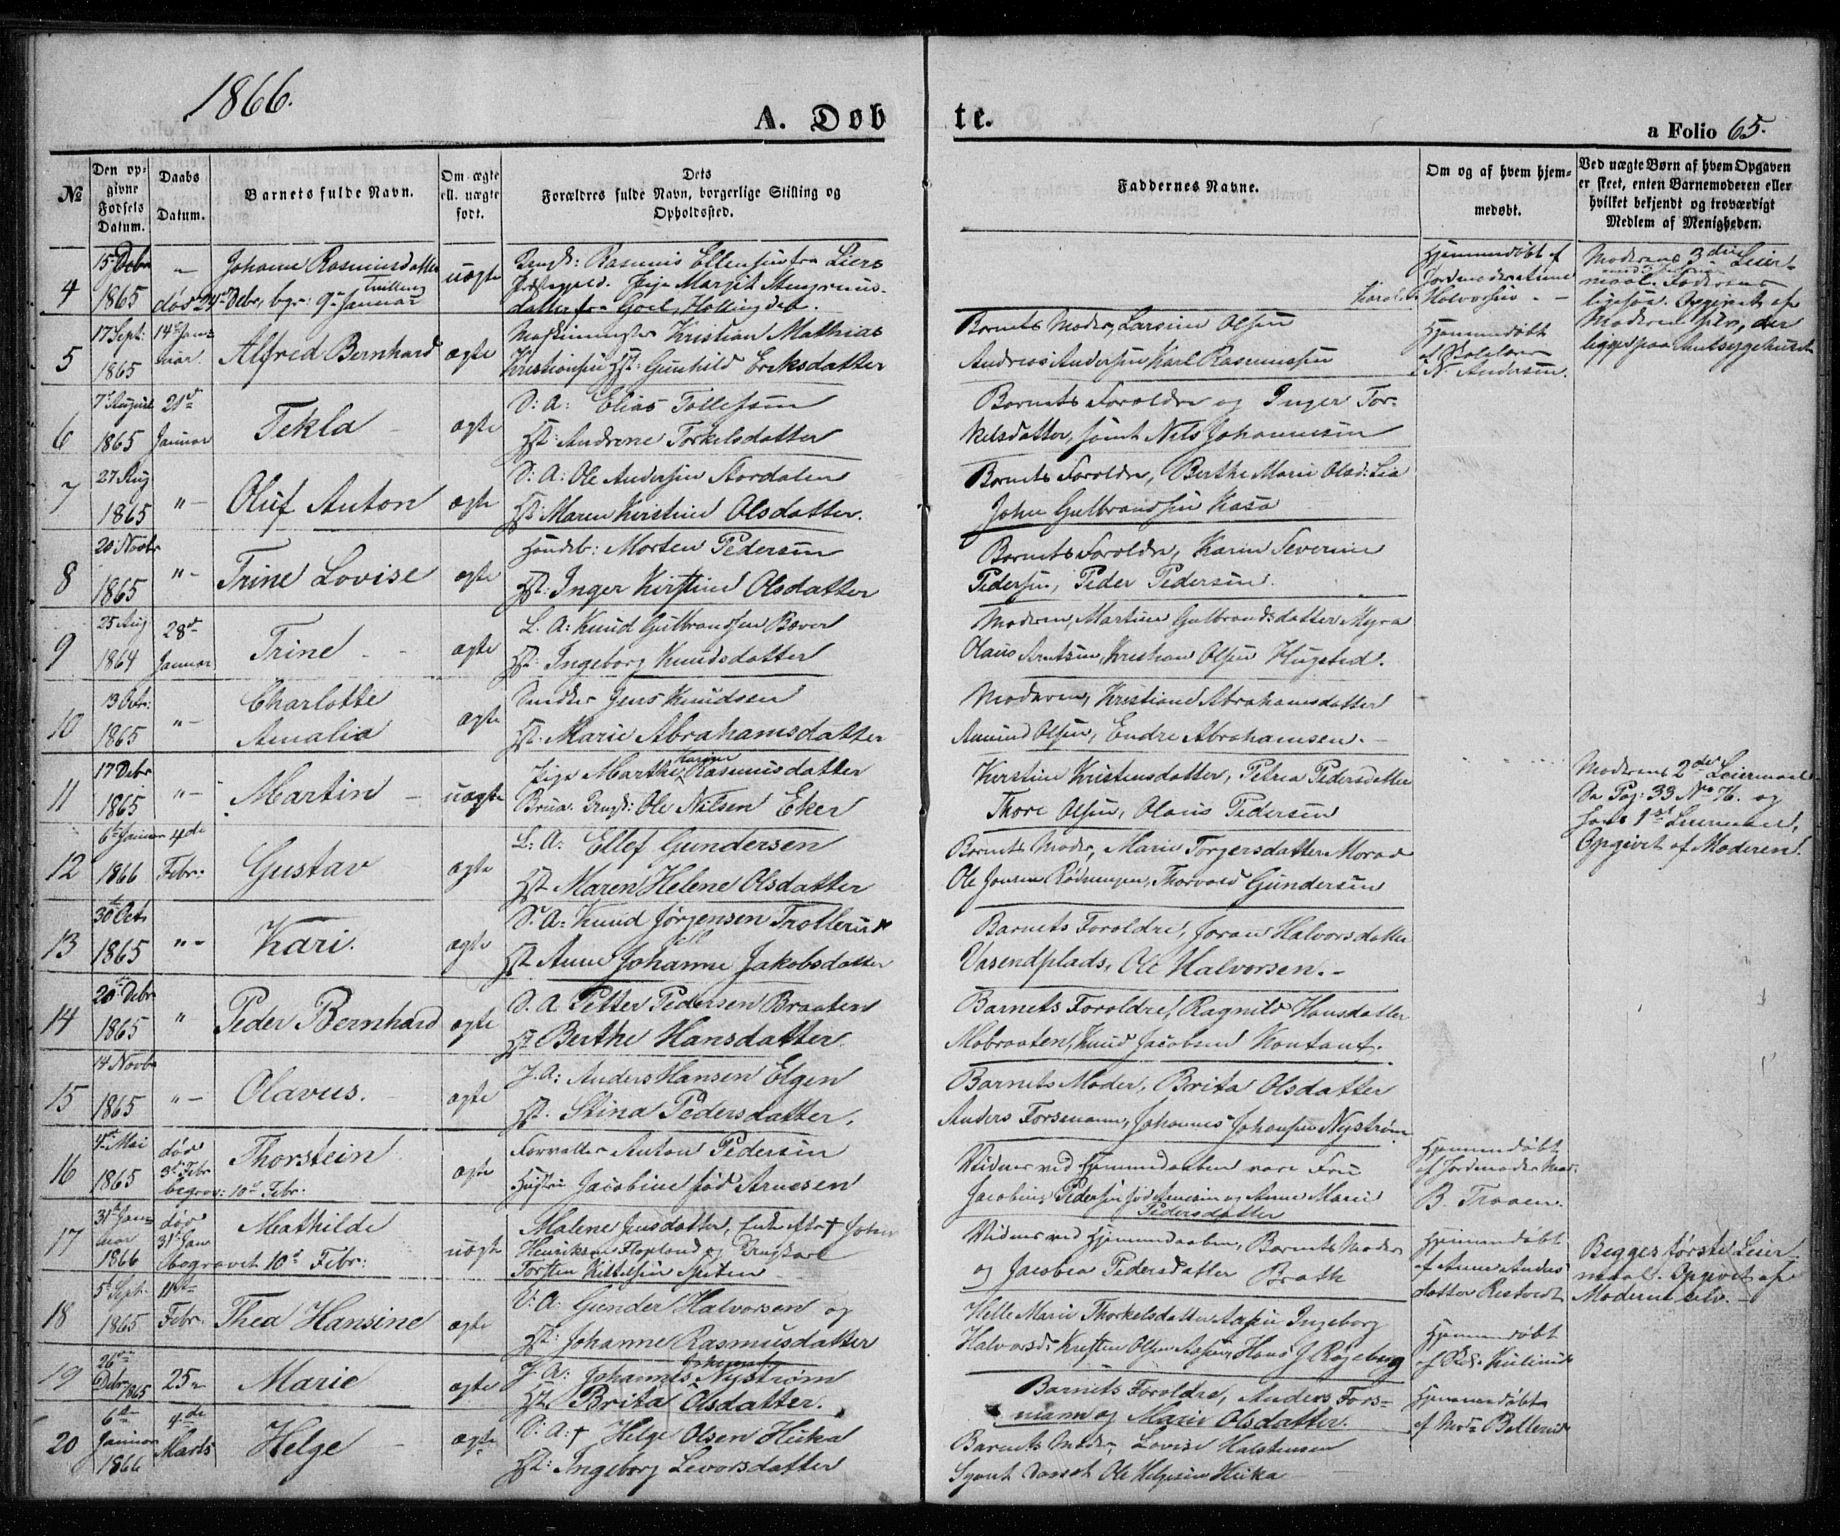 1866.
A. Døb
te.
a Folio 65.
№
Den op-
givne
Fødsels
Datum.
Daabs
Datum.
Barnets fulde Navn.
Om ægte
ell. uægte
født.
Dets
Forældres fulde Navn, borgerlige Stilling og
Opholdssted.
Faddernes Navne.
Om og af hvem hjem-
medøbt.
Ved uægte Børn af hvem Opgaven
er skeet, enten Barnemoderen eller
hvilket bekjendt og troværdigt
Medlem af Menigheden.
4
15 Debr
1865
"
død 24de Debr, begr: 9de Januar
Johanne Rasmusdatter
Tvilling
uægte
Rasmus Ellensen fra Liers
Præstegaard. Pige Margit
datter fra Goel, Hallingdal.
Hjemmedøbt af
Jordmoder Anne
Halvorsen
Moderens 3die Leier-
maal. Faderens
ligesaa. Opgivet af
Moderen selv, der
ligger paa Amtssygehuset
5
17 Sept:
1865
14de Jan-
uar.
Alfred Bernhard
ægte
Maskinmester Kristian Mathias
Kristiansen Hst: Gunhild Eriksdatter
Barnets Moder, Larsine Olsen
Andreas Andersen Karl Rasmussen
Hjemmedøbt
N. Andersen.
6
7de August
1865
21de
Januar
Tekla
ægte
S: A: Elias Tollefsen
Hst: Andrine Torkelsdatter
Barnets Forældre og Inger Tor-
kelsdatter, samt Nils Johannesen
7
27 Aug
1865
"
Oluf Anton
ægte
S: A: Ole Andersen Aardalen
Hst: Maren Kirstine Olsdatter.
Barnets Forældre, Berthe Marie Olsd: Lia
John Gulbrandsen Kasa
8
20 Novbr
1865
"
Trine Lovise
ægte
Handelsb: Morten Pedersen
Hst: Inger Kirstine Olsdatter
Barnets Forældre, Karen Severine
Pedersen, Peder Pedersen.
9
25 Aug
1864
28de
Januar
Trine
ægte
L. A: Knud Gulbrandsen Bæver
Hst: Ingeborg Knudsdatter
Moderen, Martine Gulbrandsdatter Myra
Olaus Arntsen, Kristian Olsen Hugsted.
10
13 Octr:
1865
"
Charlotte
Amalia
ægte
Snedker Jens Knudsen
Hst. Marie Abrahamsdatter
Moderen, Kristiane Abrahamsdatter
Amund Olsen, Endre Abrahamsen.
11
17 Debr
1865
"
Martin
uægte
Pige Marthe Karine Rasmusdatter
Brua. Ungk: Ole Nilsen Eker
Kirstine Kristensdatter, Petrea Pedersdatter
Thore Olsen, Olaus Pedersen
Moderens 2det Leiermaal
Se Pag: 33 No 76. og
hans 1ste Leiermaal,
Opgivet af Moderen.
12
6te Januar
1866
4de
Febr:
Gustav
ægte
L: A: Ellef Gundersen
Hst Maren Helene Olsdatter
Barnets Moder, Marie Torgersdatter Morad
Ole Jonsen Rødningen, Thorvald Gundersen
13
30te Oct
1865
"
Kari.
ægte
S. A: Knud Jørgensen Trollerud
Hst Anne Johanne Jakobsdatter
Barnets Forældre, Joran Halvorsdatter
Vasendplads, Ole Halvorsen.
14
20de Debr
1865
"
Peder Bernhard
ægte
S. A Petter Pedersen Braaten
Hst Berthe Hansdatter
Barnets Forældre, Ragnild Hansdatter
Mobraaten, Knud Jacobsen Kontant.
15
14 Novbr
1865
"
Olavus.
ægte
J. A: Anders Hansen Elgen
Hst. Stina Pedersdatter.
Barnets Moder, Brita Olsdatter
Anders Forsmann, Johannes Johansen Nystrøm
16
4de Mai
1865
død
3de Febr
begrav: 10de Febr.
Thorstein
ægte
Forvalter Anton Pedersen
Hustru Jacobine fød Arnesen
Vidner ved Hjemmedaaben vare Fru
Jacobine Pedersen fød Arnesen og Anne Marie
Pedersdatter
Hjemmedøbt
af Jordmoder Mad:
B. Traaen.
17
31te Jan
uar
1866
død
31te Jan
Begravet 10de Febr:
Mathilde
uægte
Malene Jensdatter, Enke efter John
Henriksen Flopland og Ungkarl
Torsten Kittelsen Spiten
Vidner ved Hjemmedaaben, Barnets Moder
og Jacobea Pedersdatter Brath
Hjemmedøbt
af Anne Anders
datter Rostvedt
Begges første Leier-
maal. Opgivet af
Moderen selv.
18
5te Sept.
1865
11te
Febr.
Thea Hansine
ægte
S: A: Gunder Halvorsen og
Hst: Johanne Rasmusdatter
Helle Marie Thorkelsdatter Aasen Ingeborg
Halvorsd: Kristen Olsen Aasen, Hans J Røgeberg
Hjemmedøbt
19
26de
Debr 1865
25de
Marie
ægte
J. A: Johannes Johansen Nystrøm
Hst Brita Olsdatter.
Barnets Forældre, Anders Fors-
mann og Marie Olsdatter.
Hjemmedøbt
af Mor Bellerud
20
6te
Januar
1866
4de
Marts
Helge
ægte
S: A: † Helge Olsen Huka
Hst: Ingeborg Levorsdatter
Barnets Moder, Lovise Halstensen
Ole Helgesen Huka